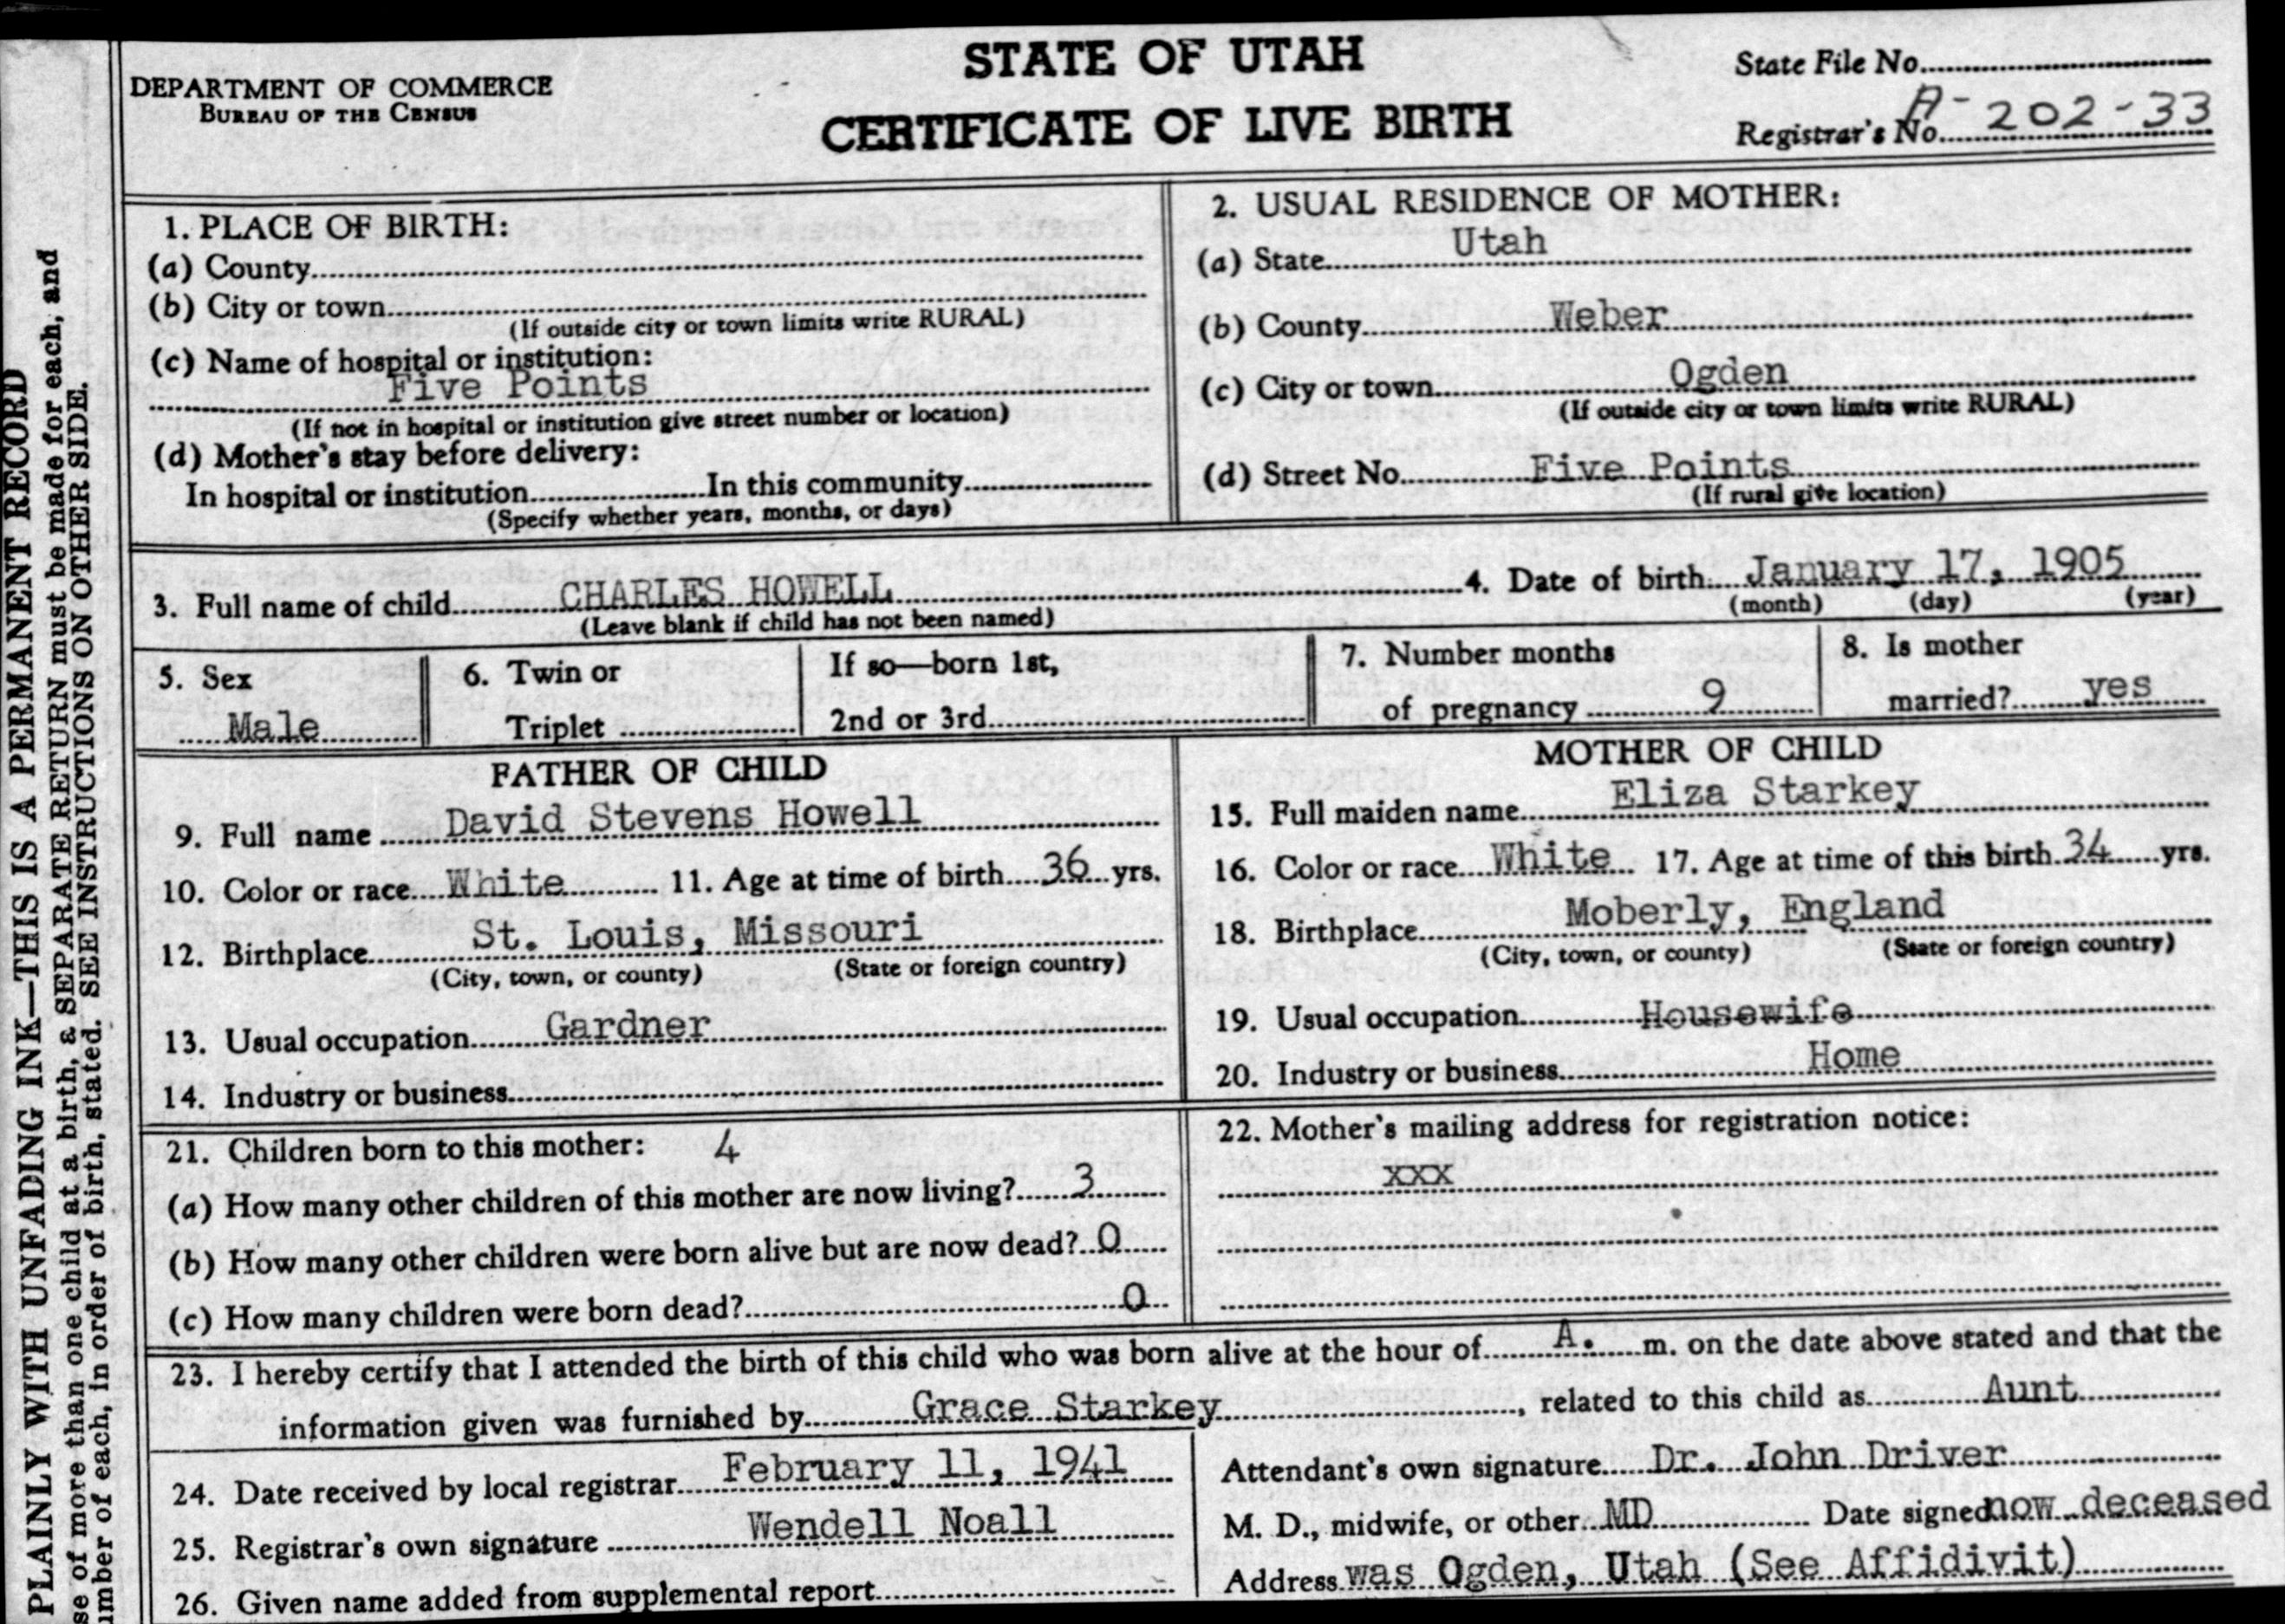 STATE OF UTAH
CERTIFICATE OF LIVE BIRTH
DEPARTMENT OF COMMERCE
BUREAU OF THE CENSUS
State File No.
Registrar's No. A-202-33
1. PLACE OF BIRTH:
(a) County
(b) City or town
(If outside city or town limits write RURAL)
(c) Name of hospital or institution:
Five Points
(If not in hospital or institution give street number or location)
(d) Mother's stay before delivery:
In hospital or institution In this community
(Specify whether years, months, or days)
2. USUAL RESIDENCE OF MOTHER:
(a) State Utah
(b) County Weber
(c) City or town Ogden
(If outside city or town limits write RURAL)
(d) Street No. Five Points
(If rural give location)
3. Full name of child CHARLES HOWELL 4. Date of birth January 17, 1905
(Leave blank if child has not been named) (month) (day) (year)
5. Sex
Male
6. Twin or
Triplet
If so—born 1st,
2nd or 3rd
7. Number months
of pregnancy 9
8. Is mother
married? yes
FATHER OF CHILD
9. Full name David Stevens Howell
10. Color or race White 11. Age at time of birth 36 yrs.
12. Birthplace St. Louis, Missouri
(City, town, or county) (State or foreign country)
13. Usual occupation Gardner
14. Industry or business
MOTHER OF CHILD
15. Full maiden name Eliza Starkey
16. Color or race White 17. Age at time of this birth 34 yrs.
18. Birthplace Moberly, England
(City, town, or county) (State or foreign country)
19. Usual occupation Housewife
20. Industry or business Home
21. Children born to this mother: 4
(a) How many other children of this mother are now living? 3
(b) How many other children were born alive but are now dead? 0
(c) How many children were born dead? 0
22. Mother's mailing address for registration notice:
xxx
23. I hereby certify that I attended the birth of this child who was born alive at the hour of A. m. on the date above stated and that the
information given was furnished by Grace Starkey, related to this child as Aunt
24. Date received by local registrar February 11, 1941
25. Registrar's own signature Wendell Noall
26. Given name added from supplemental report
Attendant's own signature Dr. John Driver
M. D., midwife, or other MD Date signed now deceased
Address was Ogden, Utah (See Affidivit)
PLAINLY WITH UNFADING INK—THIS IS A PERMANENT RECORD
se of more than one child at a birth, a SEPARATE RETURN must be made for each, and
umber of each, in order of birth, stated. SEE INSTRUCTIONS ON OTHER SIDE.